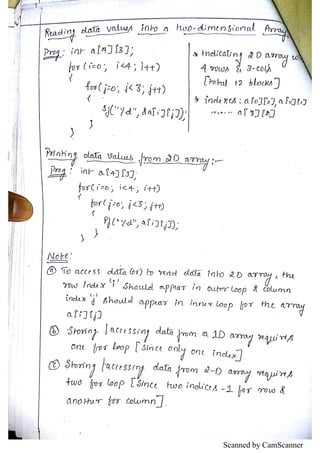 Reading data values into a two-dimensional Array
Prog: int a[4][3];
for(i=0; i<4; i++)
{
for(j=0; j<3; j++)
{
Sf("%d", &a[i][j]);
}
}
* Indicating 2D array
4 rows & 3-cols
[total 12 blocks]
* indexes: a[0][0], a[0][1]
...... a[3][2]
Printing data values from 2D array:-
Prog: int a[4][3];
for(i=0; i<4; i++)
{
for(j=0; j<3; j++)
{
Pf("%d", a[i][j]);
}
}
Note:
(a) To access data (or) to read data into 2D array, the
row index 'i' should appear in outer loop & column
index 'j' should appear in inner loop for the array
a[i][j]
(b) Storing / accessing data from a 1D array requires
one for loop [since only one index]
(c) Storing / accessing data from 2-D array requires
two for loop [since two indices -1 for row &
another for column].
Scanned by CamScanner